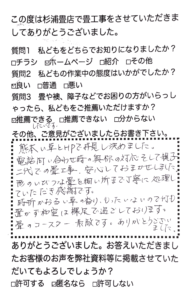 この度は杉浦畳店で畳工事をさせていただきま
してありがとうございました。
質問1 私どもをどちらでお知りになりましたか?
□チラシ ☑ホームページ □紹介 □その他
質問2 私どもの作業中の態度はいかがでしたか?
☑良い □普通 □悪い
質問3 畳や襖、障子などでお困りの方がいらっし
ゃったら、私どもをご推薦いただけますか?
☑推薦できる □推薦できない □分からない
その他、ご意見がございましたらお書き下さい。
悠太い草とHPで拝見し決めました。
電話問い合わせ時の奥様の対応そして親子
二代での畳工事、安心しておまかせしました
時のかおる い草の香り、もったいないのですが
畳の
畳のコースター 素敵です。ありがとうござい
ました。
ありがとうございました。お答えいただきまし
たお客様のお声を弊社資料等に掲載させていた
だいてもよろしでしょうか?
□許可する ☑匿名なら □許可しない